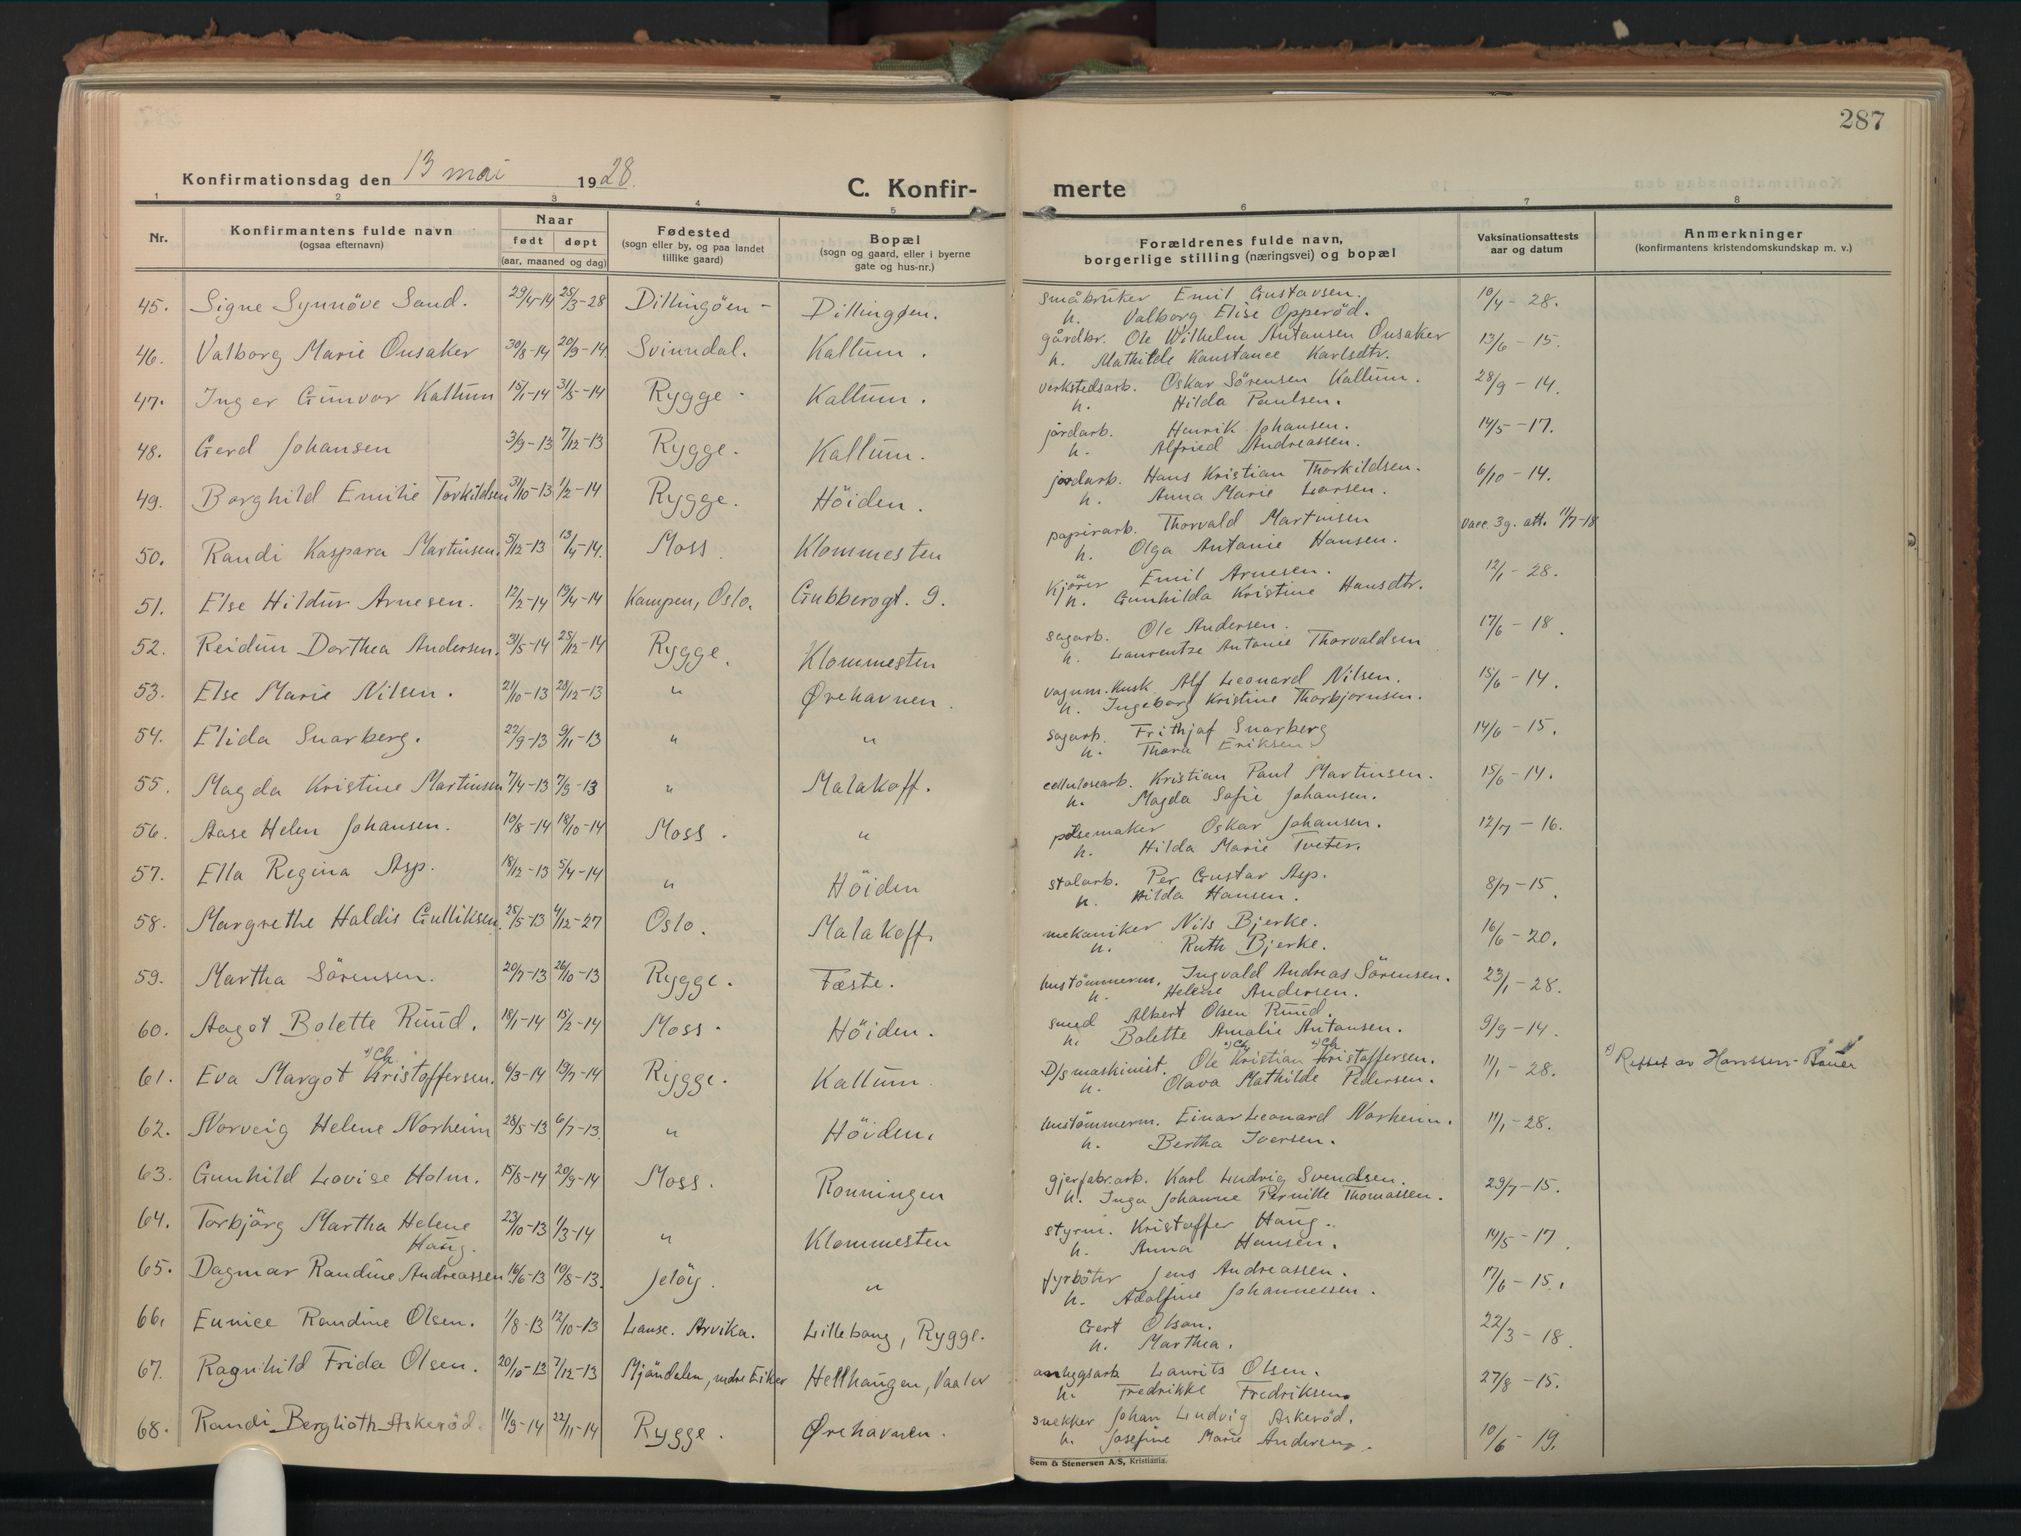 287
Konfirmationsdag den 13 mai 1928.
C. Konfir- merte
1 2 3 4 5 6 7 8
Nr.
Konfirmantens fulde navn
(ogsaa efternavn)
Naar
født døpt
(aar, maaned og dag)
Fødested
(sogn eller by, og paa landet
tillike gaard)
Bopæl
(sogn og gaard, eller i byerne
gate og hus-nr.)
Forældrenes fulde navn,
borgerlige stilling (næringsvei) og bopæl
Vaksinationsattests
aar og datum
Anmerkninger
(konfirmantens kristendomskundskap m. v.)
45. Signe Synnöve Sand. 29/4-14 25/3-28 Dillingöen - Dillingøen. småbruker Emil Gustavsen. 10/4-28.
h. Valborg Elise Opperød.
46. Valborg Marie Onsaker 30/8-14 20/9-14. Svinndal. Kallum. gårdbr. Ole Wilhelm Antonsen Onsaker 13/6-15.
h. Mathilde Konstance Karlsdtr.
47. Inger Gunvor Kallum 15/1-14 31/5-14 Rygge. Kallum. verkstedsarb. Oskar Sørensen Kallum. 28/9-14.
h. Hilda Paulsen.
48. Gerd Johansen 3/9-13 7/12-13 Rygge. Kallum. jordarb. Henrik Johansen. 14/5-17.
h. Alfried Andreassen.
49. Borghild Emilie Torkildsen 31/10-13 1/2-14 Rygge. Höiden. jordarb. Hans Kristian Thorkildsen. 6/10-14.
h. Anna Marie Larsen.
50. Randi Kaspara Martinsen. 5/12-13 13/4-14. Moss. Klommesten papirarb. Thorvald Martinsen Vacc. 3g. att. 11/7-18
h. Olga Antonie Hansen.
51. Else Hildur Arnesen. 12/2-14 19/4-14 Kampen, Oslo. Gubberogt. 9. Kjörer Emil Arnesen. 12/1-28.
h. Gunhilda Kristine Hansdtr.
52. Reidun Dorthea Andersen. 31/5-14 25/12-14 Rygge. Klommesten sagarb. Ole Andersen. 17/6-18.
h. Laurentze Antonie Thorvaldsen
53. Else Marie Nilsen. 21/10-13 28/12-13 " Ørehavnen. vognm. kusk Alf Leonard Nilsen. 15/6-14.
h. Ingeborg Kristine Thorbjornsen.
54. Elida Snarberg. 22/9-13 9/11-13 " " sagarb. Frithjof Snarberg 14/6-15.
h. Thora Eriksen.
55. Magda Kristine Martinsen 7/4-13 7/9-13 " Malakoff. cellulosearb. Kristian Paul Martinsen. 15/6-14.
h. Magda Sofie Johansen.
56. Aase Helen Johansen. 10/8-14 18/10-14 Moss. " pølsemaker Oskar Johansen. 12/7-16.
h. Hilda Marie Tveter.
57. Ella Regina Asp. 18/12-13 5/4-14 " Höiden stålarb. Per Gustav Asp. 8/7-15.
h. Hilda Hansen.
58. Margrethe Haldis Gulliksen. 25/5-13 4/12-27 Oslo. Malakoff. mekaniker Nils Bjerke. 16/6-20.
h. Ruth Bjerke.
59. Martha Sörensen. 20/7-13 26/10-13 Rygge. Fæste. hustömmerm. Ingvald Andreas Sörensen. 23/1-28.
h. Helene Andersen.
60. Aagot Bolette Ruud. 18/1-14 15/2-14 Moss. Höiden. smed Albert Olsen Ruud. 9/9-14.
h. Bolette Amalie Antonsen.
*) Ch *) Ch *) Ch
61. Eva Margot Kristoffersen. 6/3-14 19/7-14 Rygge. Kallum. D/s maskinist. Ole Kristian Kristoffersen. 11/1-28. *) Rettet av Hanssen-Bauer
h. Olava Mathilde Pedersen.
62. Norveig Helene Norheim 28/5-13 6/7-13. " Höiden. hustömmerm. Einar Leonard Norheim. 11/1-28.
h. Bertha Iversen.
63. Gunhild Lovise Holm. 15/8-14 20/9-14 Moss. Ronningen gjerfabr.arb. Karl Ludvig Svendsen. 29/7-15.
h. Inga Johanne Pernille Thomassen.
64. Torbjörg Martha Helene 23/10-13 1/3-14 " Klommesten styrm. Kristoffer Haug. 14/5-17.
Haug. h. Anna Hansen.
65. Dagmar Randine Andreassen 16/6-13 10/8-13. Jelöy. " fyrböter Jens Andreassen. 17/6-15.
h. Adolfine Johannessen.
66. Eunice Randine Olsen. 1/8-13 12/10-13 Lansc. Arvika. Lillebaug, Rygge. Gert Olson. 22/3-18
h. Marthea.
67. Ragnhild Frida Olsen. 20/10-13 7/12-13 Mjöndalen, nedre Eiker Hellhaugen, Vaaler anlegsarb Laurits Olsen. 27/8-15.
h. Fredrikke Fredriksen.
68. Randi Berglioth Askeröd. 11/9-14 22/11-14 Rygge. Ørehavnen. snekker Johan Ludvig Askeröd. 10/6-19.
h. Josefine Marie Andersen.
Sem & Stenersen A/S, Kristiania.